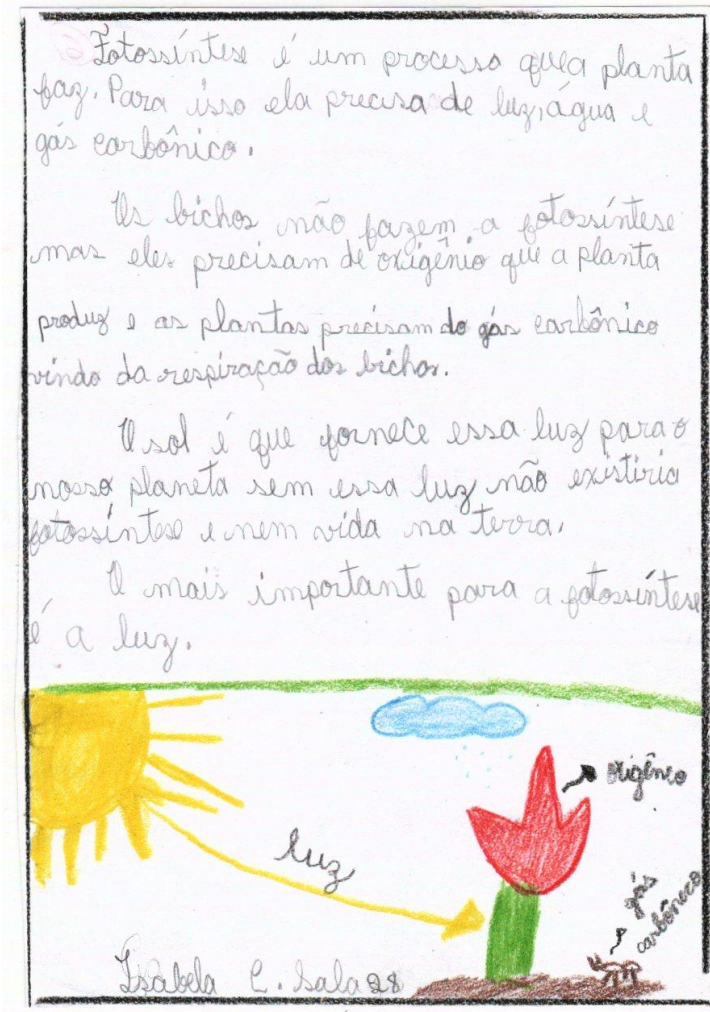 Fotossíntese é um processo que a planta
faz. Para isso ela precisa de luz, água e
gás carbônico.
Os bichos não fazem a fotossíntese
mas eles precisam de oxigênio que a planta
produz e as plantas precisam do gás carbônico
vindo da respiração dos bichos.
O sol é que fornece essa luz para o
nosso planeta sem essa luz não existiria
fotossíntese e nem vida na terra.
O mais importante para a fotossíntese
é a luz.
oxigênio
luz
gás
carbônico
Isabela C. Sala 28